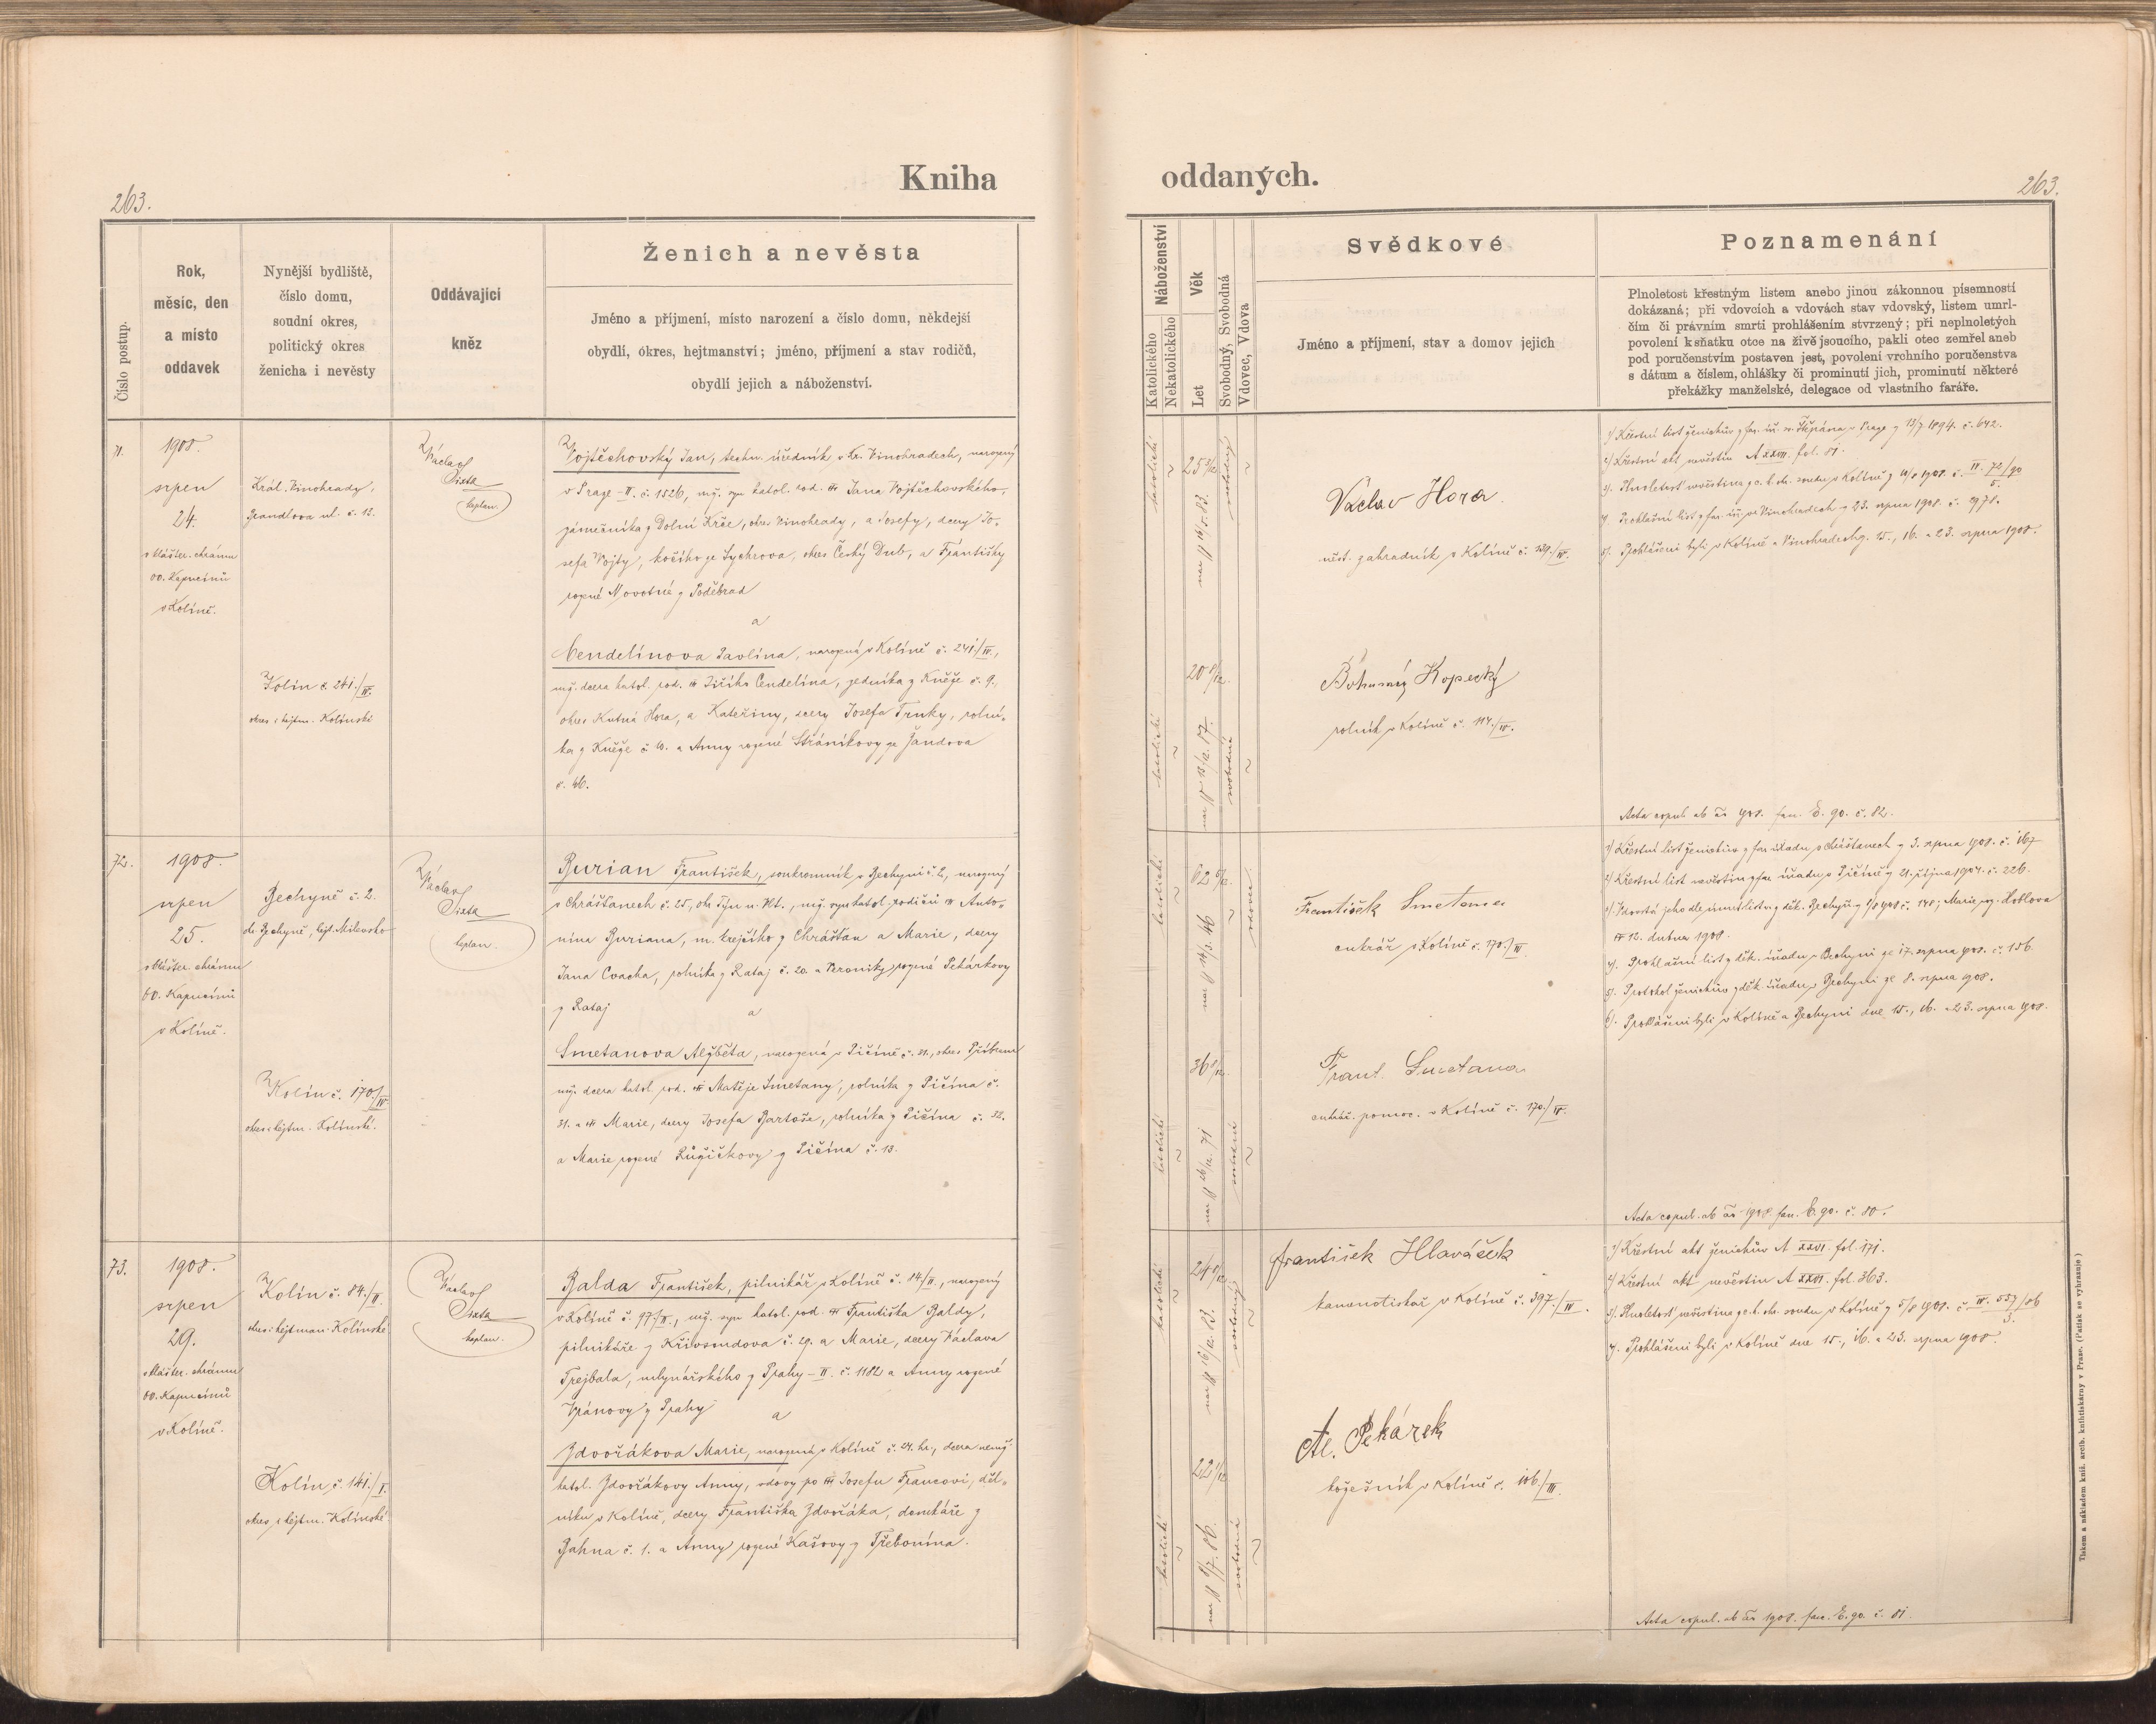 Kniha oddaných.
263.
263.
Číslo postup.
Rok,
měsíc, den
a místo
oddavek
Nynější bydliště,
číslo domu,
soudní okres,
politický okres
ženicha i nevěsty
Oddávající
kněz
Ženich a nevěsta
Jméno a příjmení, místo narození a číslo domu, někdejší
obydlí, okres, hejtmanství; jméno, příjmení a stav rodičů,
obydlí jejich a náboženství.
Náboženství
Katolického
Nekatolického
Věk
Let
Svobodný, Svobodná
Vdovec, Vdova
Svědkové
Jméno a příjmení, stav a domov jejich
Poznamenání
Plnoletost křestným listem anebo jinou zákonnou písemností
dokázaná; při vdovcích a vdovách stav vdovský, listem umrl-
čím či právním smrti prohlášením stvrzený; při neplnoletých
povolení k sňatku otce na živě jsoucího, pakli otec zemřel aneb
pod poručenstvím postaven jest, povolení vrchního poručenstva
s dátum a číslem, ohlášky či prominutí jich, prominutí některé
překážky manželské, delegace od vlastního faráře.
71.
1908.
srpen
24.
v klášter. chrámu
OO. Kapucínů
v Kolíně.
Král. Vinohrady,
Brandlova ul. č. 13.
Kolín č. 241./IV.
okres i hejtm. Kolínské
Václav
Sixta
kaplan.
Vojtěchovský Jan, techn. úředník v Kr. Vinohradech, narozený
v Praze-II. č. 1526, mž. syn katol. rod. Jana Vojtěchovského,
zámečníka z Dolní Krče, okres Vinohrady, a Josefy, dcery Jo-
sefa Vojty, kočího ze Sychrova, okres Český Dub, a Františky
rozné Novotné z Poděbrad
a
Cendelínova Pavlína, narozená v Kolíně č. 241./IV.,
mž. dcera katol. rod. Jiřího Cendelína, zedníka z Kněže č. 9.,
okres Kutná Hora, a Kateřiny, dcery Josefa Trnky, rolní-
ka z Kněže č. 10. a Anny rozené Stráníkovy ze Žandova
č. 46.
katolické
25 5/12
svobodný
katolické
20 8/12
nar. 13/12. 87.
svobodná
Václav Hora
měst. zahradník v Kolíně č. 339./IV.
Bohumír Kopecký
rolník v Kolíně č. 114./IV.
1) Křestní list ženichův z far. úř. sv. Štěpána v Praze z 13/7. 1894. č. 642.
2) Křestní akt nevěstin A XXVII. fol. 81.
5). Prohlášeni byli v Kolíně a Vinohradech 15., 16. a 23. srpna 1908.
Acta copul. ab ao 1908. fasc. E. 90. č. 82.
72.
1908.
srpen
25.
v klášter. chrámu
OO. Kapucínů
v Kolíně.
Bechyně č. 2.
okr. Bechyně, hejt. Milevsko
Kolín č. 170./IV.
okres i hejtm. Kolínské.
Václav
Sixta
kaplan.
Burian František, soukromník v Bechyni č. 2, narozený
v Chrášťanech č. 25, okr. Týn n. Vlt., mž. syn katol. rodičů Anto-
nína Buriana, m. krejčího z Chrášťan a Marie, dcery
Jana Cvacha, rolníka z Rataj č. 20. a Veroniky rozené Pekárkovy
z Rataj
a
Smetanova Alžběta, narozená v Pičíně č. 31., okres Příbram
mž. dcera katol. rod. Matěje Smetany, rolníka z Pičína č.
31. a Marie, dcery Josefa Bartoše, rolníka z Pičína č. 32.
a Marie rozené Růžičkovy z Pičína č. 13.
katolické
62 5/12.
nar. 14/3. 46
vdovec
katolické
36 8/12.
nar. 26/12. 71
svobodná
František Smetana
cukrář v Kolíně č. 170./IV.
Frant. Smetana
cukrář. pomoc. v Kolíně č. 170./IV.
1) Křestní list ženichův z far. úřadu v Chrášťanech z 3. srpna 1908. č. 167
2) Křestní list nevěstin z far. úřadu v Pičíně z 21. října 1907. č. 226.
12. dubna 1908.
4). Prohlašní list z děk. úřadu v Bechyni ze 17. srpna 1908. č. 156.
5). Protokol ženichův z děk. úřadu v Bechyni ze 8. srpna 1908.
6). Prohlášeni byli v Kolíně a Bechyni dne 15., 16. a 23. srpna 1908.
Acta copul. ab ao 1908. fasc. E. 90. č. 80.
73.
1908.
srpen
29.
v klášter. chrámu
OO. Kapucínů
v Kolíně.
Kolín č. 84./II.
okres i hejtman. Kolínské
Kolín č. 141./I.
okres i hejtm. Kolínské.
Václav
Sixta
kaplan.
Balda František, pilnikář v Kolíně č. 14/II., narozený
v Kolíně č. 97./II., mž. syn katol. rod. Františka Baldy,
pilnikáře z Křivsoudova č. 29. a Marie, dcery Václava
Trejbala, mlynářského z Prahy-II. č. 1182 a Anny rozené
Vránovy z Prahy
a
Zdvořákova Marie, narozená v Kolíně č. 24. hr., dcera nemž.
katol. Zdvořákovy Anny, vdovy po Josefu Francovi, děl-
níku v Kolíně, dcery Františka Zdvořáka, domkáře z
Bahna č. 1. a Anny rozené Kašovy z Třebonína.
katolické
24 8/12
nar. 16/12. 83.
svobodný
katolické
22 1/12
nar. 8/7. 86.
svobodná
František Hlaváček
kamnotiskař v Kolíně č. 397./IV.
Al. Pekárek
kožešník v Kolíně č. 106./III.
1) Křestní akt ženichův A XXVI. fol. 171.
2) Křestní akt nevěstin A XXVI. fol. 363.
3) Plnoletosť nevěstina z c. k. okr. soudu v Kolíně z 5/8 1908. č. IV. 557/86
4). Prohlášeni byli v Kolíně dne 15., 16. a 23. srpna 1908.
Acta copul. ab ao 1908. fasc. E. 90. č. 81.
Tiskem a nákladem kníž. arcib. knihtiskárny v Praze. (Patisk se vyhrazuje)